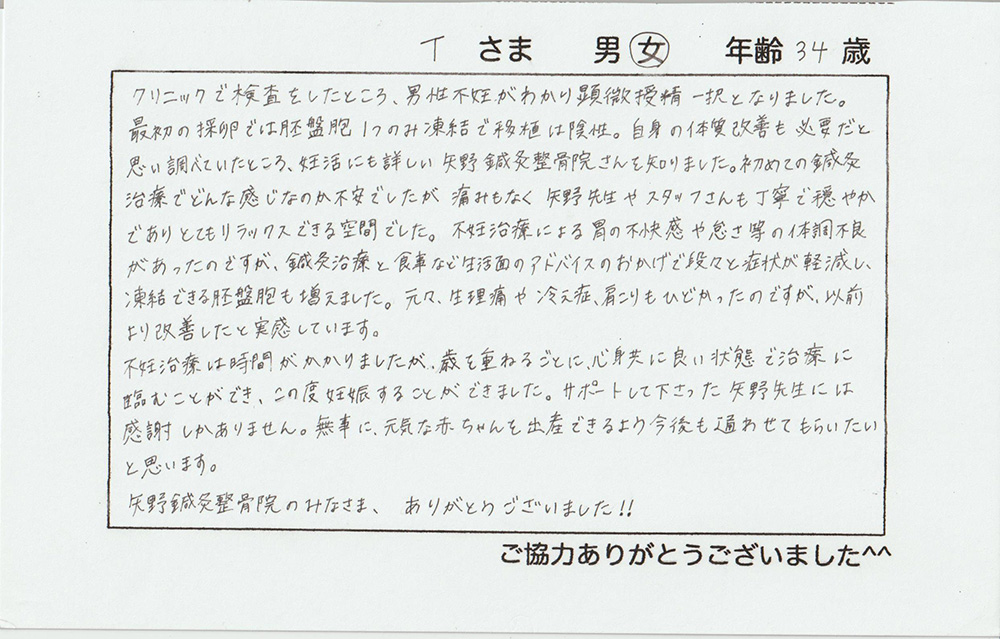 T さま 男 女 年齢 34 歳
クリニックで検査をしたところ、男性不妊がわかり顕微授精一択となりました。
最初の採卵では胚盤胞1つのみ凍結で移植は陰性。自身の体質改善も必要だと
思い調べていたところ、妊活にも詳しい矢野鍼灸整骨院さんを知りました。初めての鍼灸
治療でどんな感じなのか不安でしたが痛みもなく矢野先生やスタッフさんも丁寧で穏やか
でありとてもリラックスできる空間でした。不妊治療による胃の不快感や怠さ等の体調不良
があったのですが、鍼灸治療と食事など生活面のアドバイスのおかげで段々と症状が軽減し、
凍結できる胚盤胞も増えました。元々、生理痛や冷え症、肩こりもひどかったのですが、以前
より改善したと実感しています。
不妊治療は時間がかかりましたが、歳を重ねるごとに、心身共に良い状態で治療に
臨むことができ、この度妊娠することができました。サポートして下さった矢野先生には
感謝しかありません。無事に、元気な赤ちゃんを出産できるよう今後も通わせてもらいたい
と思います。
矢野鍼灸整骨院のみなさま、ありがとうございました!!
ご協力ありがとうございました^^